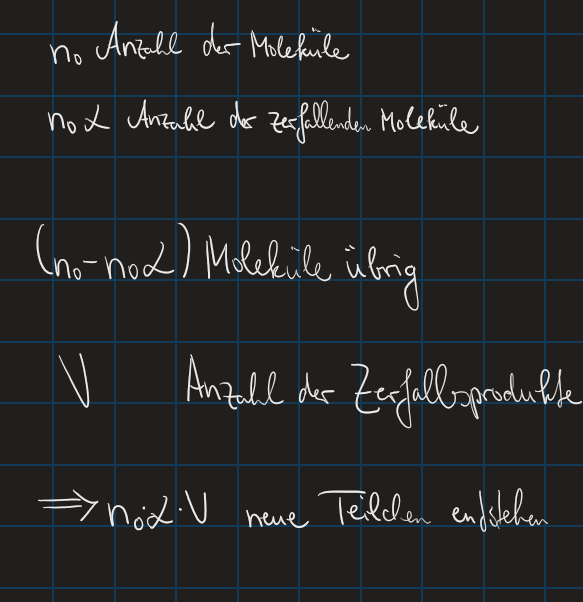 n₀ Anzahl der Moleküle
n₀α Anzahl der zerfallenden Moleküle
(n₀-n₀α) Moleküle übrig
V Anzahl der Zerfallsprodukte
⇒ n₀α·V neue Teilchen entstehen